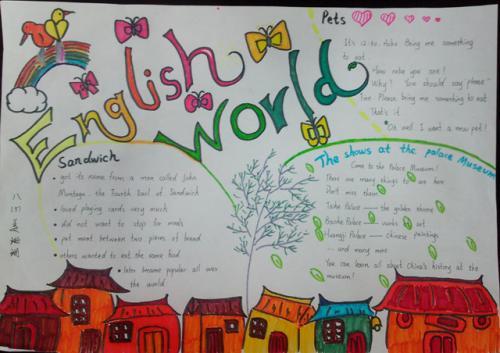 English
World
Pets
It's 12:00. Miko. Bring me something
to eat.
How rude you are!
Why? You should say "please"
fine. Please bring me something to eat
That's it.
Oh well. I want a new pet!
Sandwich
• got its name from a man called John
Montagu, the Fourth Earl of Sandwich
• loved playing cards very much
• did not want to stop for meals
• put meat between two pieces of bread
• others wanted to eat the same food
• later became popular all over
the world
The shows at the palace Museum
Come to the Palace Museum!
There are many things to are here
Don't miss them!
Taihe Palace — the golden throne
Baohe Palace — works art
Huangji Palace — Chinese paintings
... and many more
You can learn all about China's history at the
museum!
八(5)